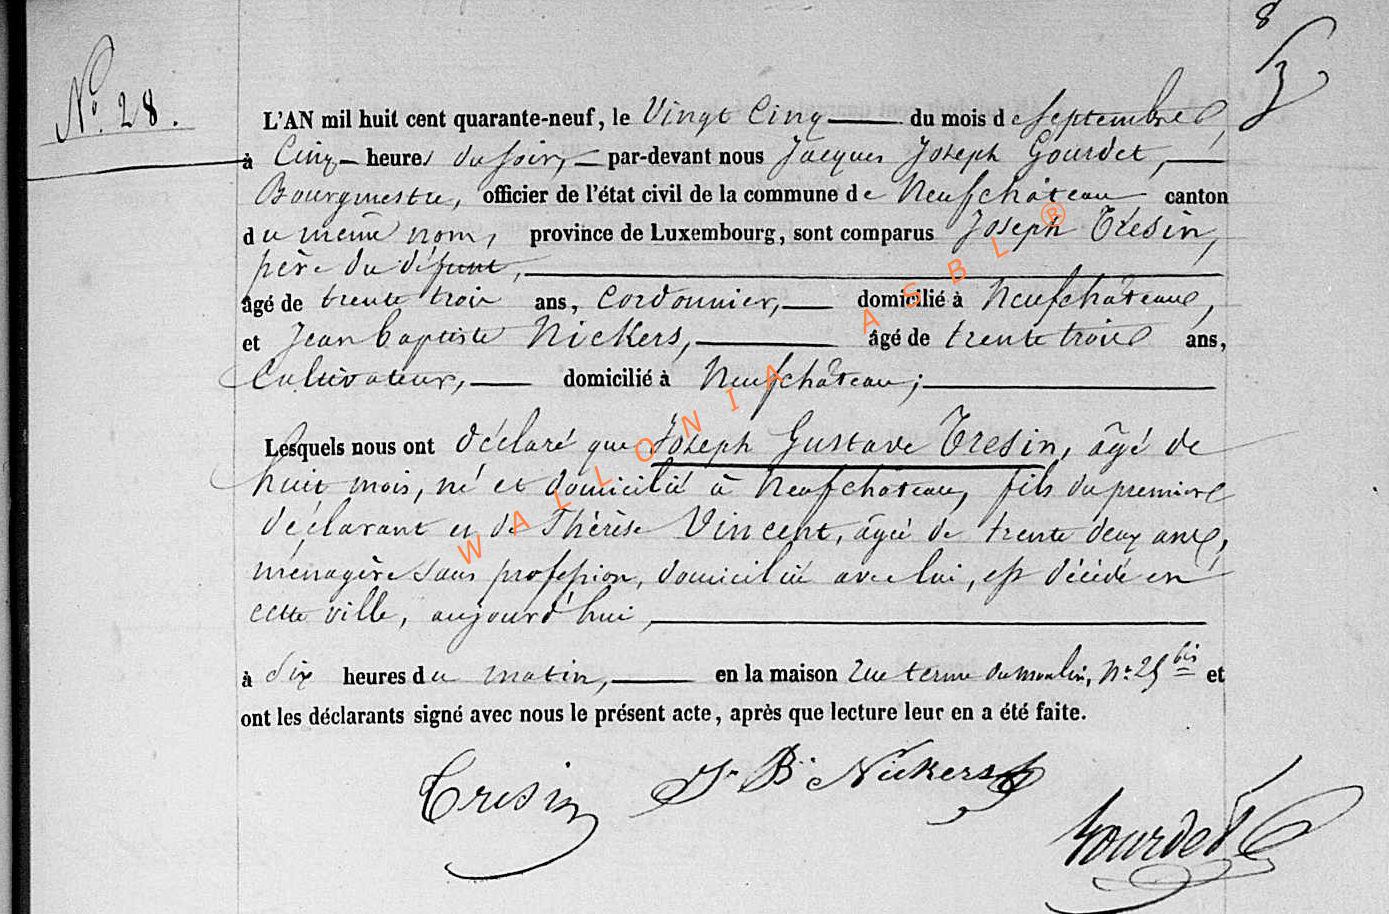 8
3
N° 28.
L'AN mil huit cent quarante-neuf, le Vingt Cinq du mois de Septembre,
à Cinq heures du soir, par-devant nous Jacques Joseph Gourdet,
Bourgmestre, officier de l'état civil de la commune de Neufchâteau canton
du même nom, province de Luxembourg, sont comparus Joseph Tresin,
père du défunt,
âgé de trente trois ans, Cordonnier, domicilié à Neufchâteau,
et Jean Baptiste Nickers, âgé de trente trois ans,
Cultivateur, domicilié à Neufchâteau;
Lesquels nous ont déclaré que Joseph Gustave Tresin, âgé de
huit mois, né et domicilié à Neufchâteau, fils du premier
déclarant et de Thérèse Vincent, âgée de trente deux ans,
ménagère sans profession, domiciliée avec lui, est décédé en
cette ville, aujourd'hui,
à dix heures du matin, en la maison rue terme du moulin, N° 25 bis et
ont les déclarants signé avec nous le présent acte, après que lecture leur en a été faite.
Tresin Jn Bte Nickers
Gourdet
WALLONIA ASBL ®